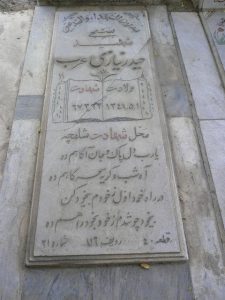 شهید
حیدر نیازمی
ولادت شهادت
۱۳۴۹.۵.۱ ۶۷.۳.۲۳
محل شهادت شلمچه
یارب دل پاک و جان آگاهم ده
آه شب و گریه سحرگاهم ده
در راه خود اول ز خودم بیخود کن
بیخود چو شدم ز خود بخود راهم ده
قطعه ۴۰ ردیف ۱۱۶ شماره ۲۱